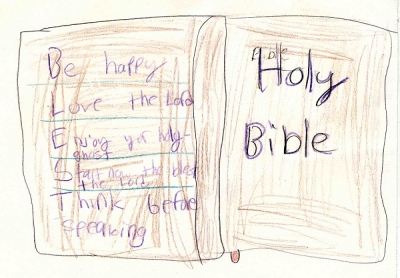 Be happy
Love the Lord
Enjoy yor holy-
ghost
Start now the
the Lord
Think before
speaking
Holy
Bible